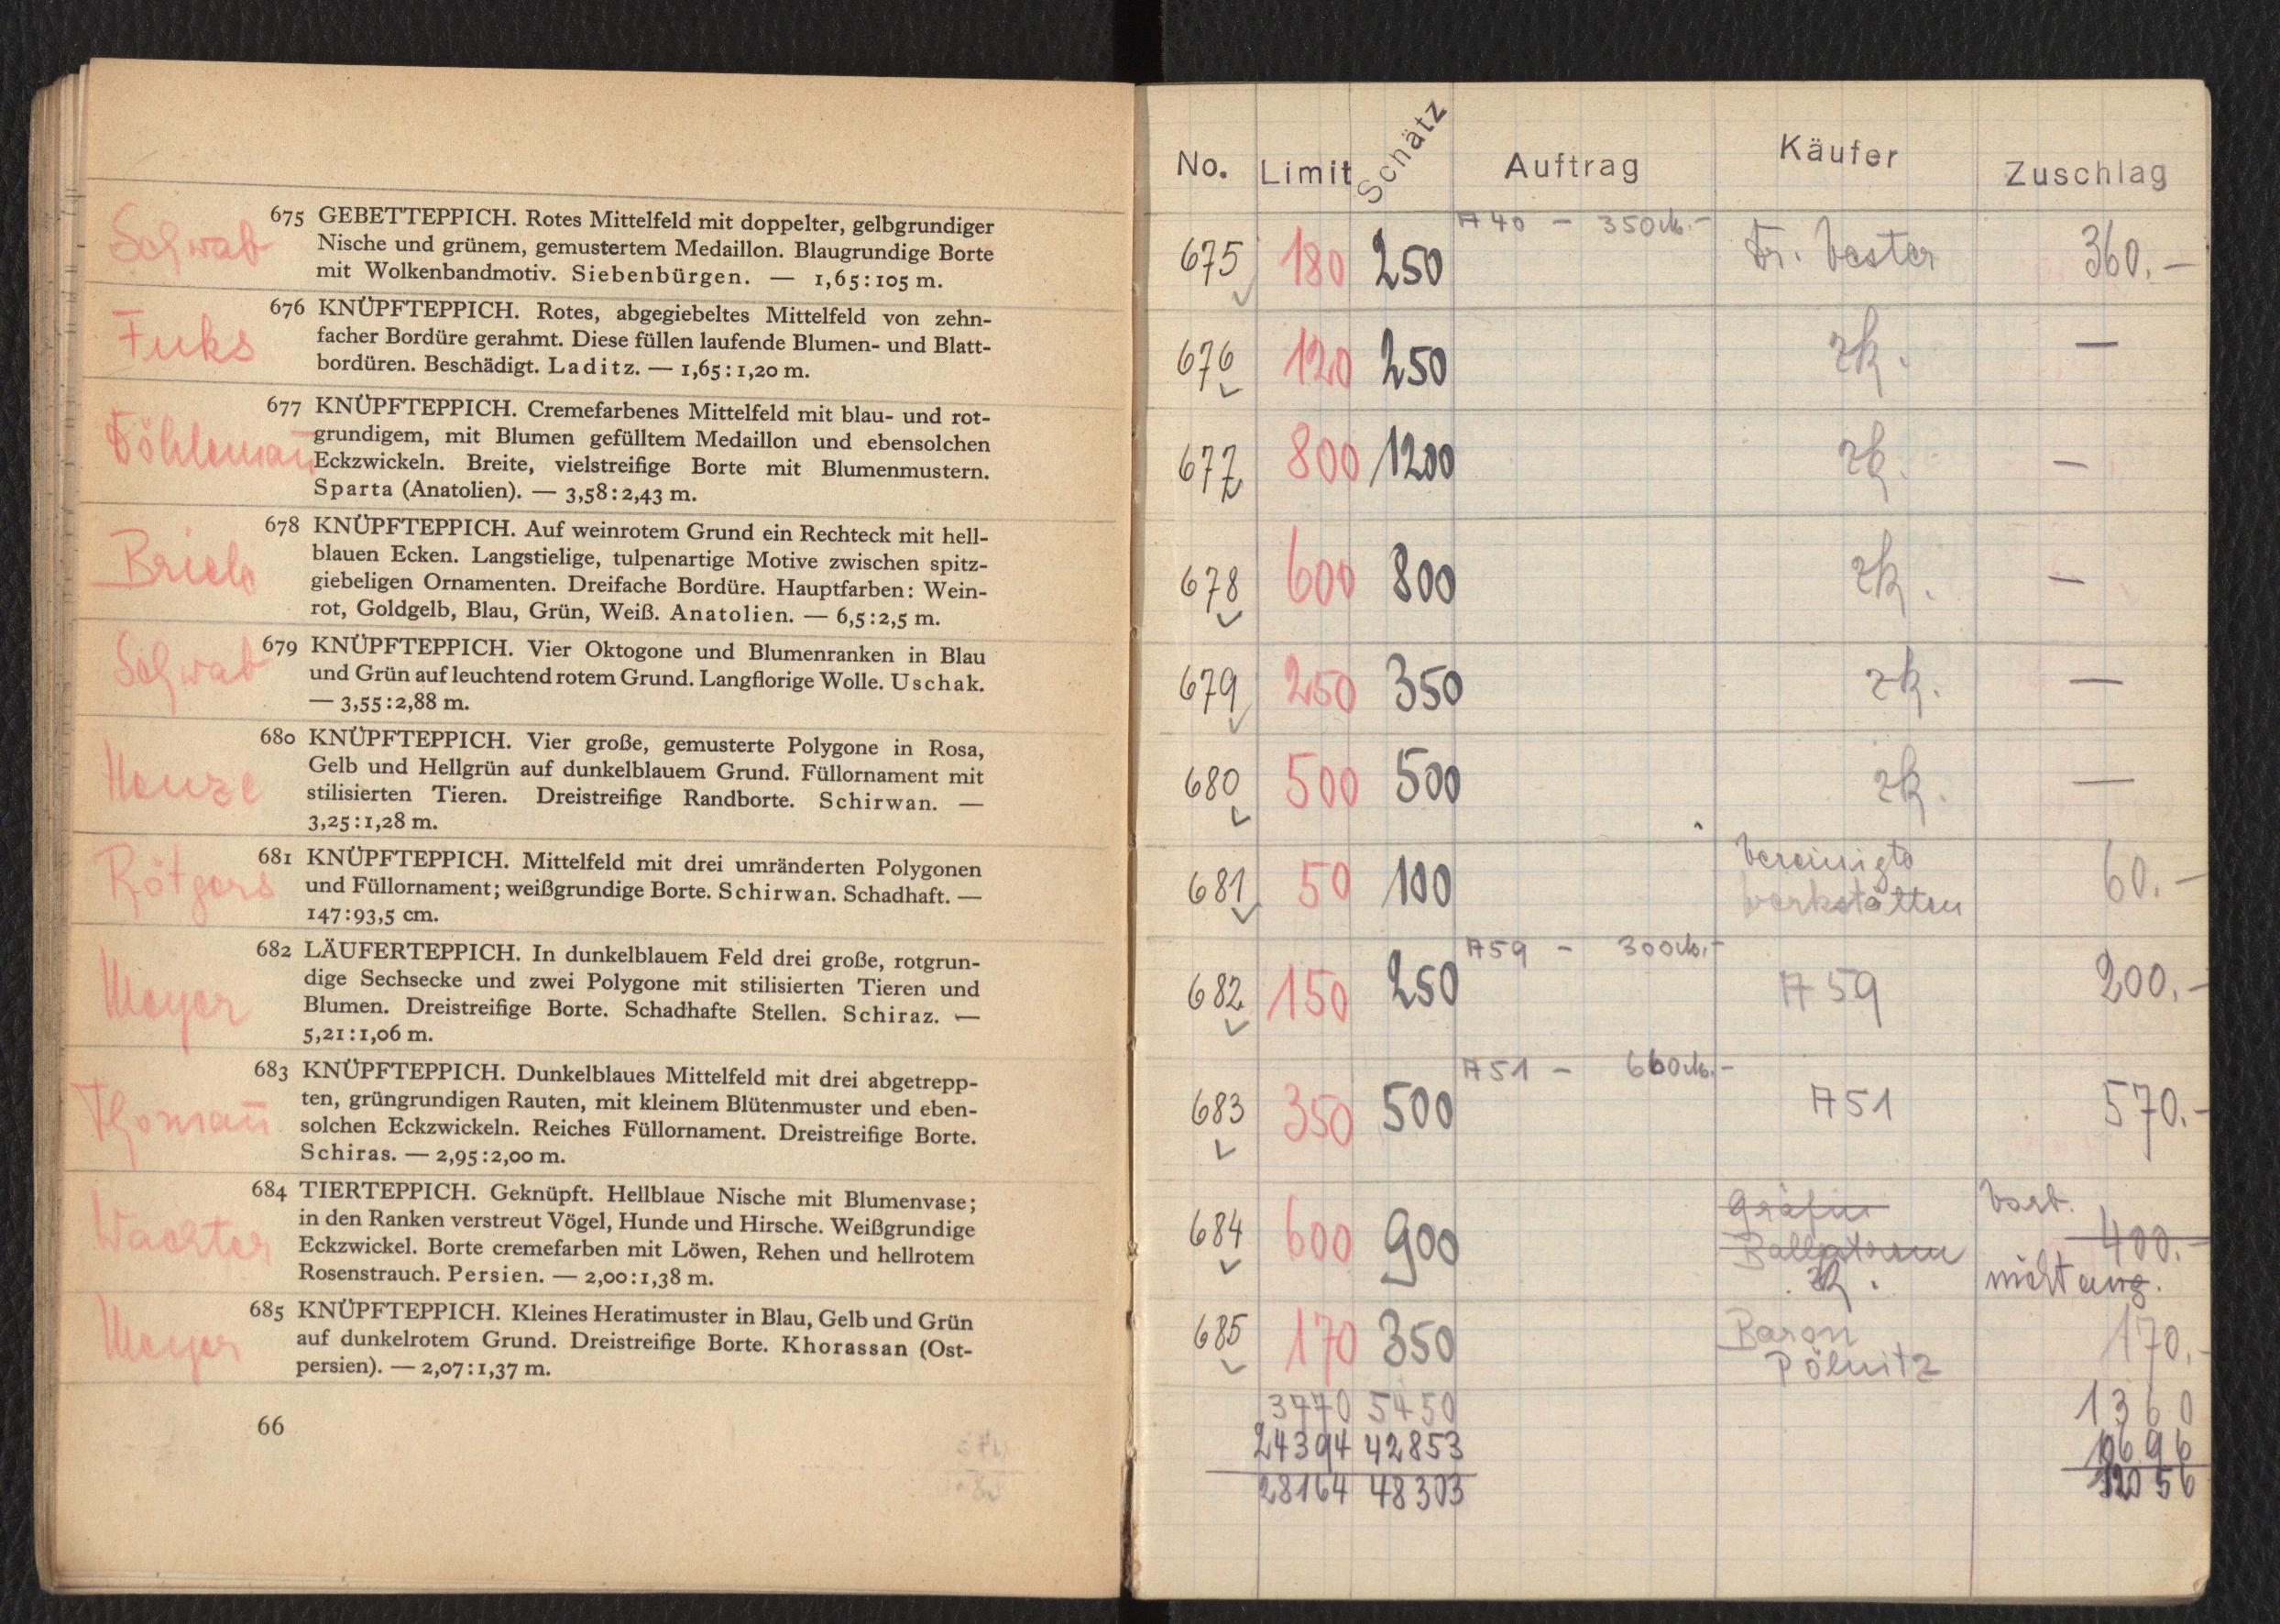 Schwab
675 GEBETTEPPICH. Rotes Mittelfeld mit doppelter, gelbgrundiger
Nische und grünem, gemustertem Medaillon. Blaugrundige Borte
mit Wolkenbandmotiv. Siebenbürgen. — 1,65:105 m.
Fuks
676 KNÜPFTEPPICH. Rotes, abgegiebeltes Mittelfeld von zehn-
facher Bordüre gerahmt. Diese füllen laufende Blumen- und Blatt-
bordüren. Beschädigt. Laditz. — 1,65:1,20 m.
677 KNÜPFTEPPICH. Cremefarbenes Mittelfeld mit blau- und rot-
grundigem, mit Blumen gefülltem Medaillon und ebensolchen
Eckzwickeln. Breite, vielstreifige Borte mit Blumenmustern.
Sparta (Anatolien). — 3,58:2,43 m.
678 KNÜPFTEPPICH. Auf weinrotem Grund ein Rechteck mit hell-
blauen Ecken. Langstielige, tulpenartige Motive zwischen spitz-
giebeligen Ornamenten. Dreifache Bordüre. Hauptfarben: Wein-
rot, Goldgelb, Blau, Grün, Weiß. Anatolien. — 6,5:2,5 m.
Schwab
679 KNÜPFTEPPICH. Vier Oktogone und Blumenranken in Blau
und Grün auf leuchtend rotem Grund. Langflorige Wolle. Uschak.
— 3,55:2,88 m.
680 KNÜPFTEPPICH. Vier große, gemusterte Polygone in Rosa,
Gelb und Hellgrün auf dunkelblauem Grund. Füllornament mit
stilisierten Tieren. Dreistreifige Randborte. Schirwan. —
3,25:1,28 m.
Rötgers
681 KNÜPFTEPPICH. Mittelfeld mit drei umränderten Polygonen
und Füllornament; weißgrundige Borte. Schirwan. Schadhaft. —
147:93,5 cm.
Meyer
682 LÄUFERTEPPICH. In dunkelblauem Feld drei große, rotgrun-
dige Sechsecke und zwei Polygone mit stilisierten Tieren und
Blumen. Dreistreifige Borte. Schadhafte Stellen. Schiraz. —
5,21:1,06 m.
683 KNÜPFTEPPICH. Dunkelblaues Mittelfeld mit drei abgetrepp-
ten, grüngrundigen Rauten, mit kleinem Blütenmuster und eben-
solchen Eckzwickeln. Reiches Füllornament. Dreistreifige Borte.
Schiras. — 2,95:2,00 m.
Wachter
684 TIERTEPPICH. Geknüpft. Hellblaue Nische mit Blumenvase;
in den Ranken verstreut Vögel, Hunde und Hirsche. Weißgrundige
Eckzwickel. Borte cremefarben mit Löwen, Rehen und hellrotem
Rosenstrauch. Persien. — 2,00:1,38 m.
Meyer
685 KNÜPFTEPPICH. Kleines Heratimuster in Blau, Gelb und Grün
auf dunkelrotem Grund. Dreistreifige Borte. Khorassan (Ost-
persien). — 2,07:1,37 m.
66
No. Limit Schätz Auftrag Käufer Zuschlag
A 40 – 350
675 180 250 Dr. Vester 360.–
676 120 250 zk. –
677 800 1200 zk. –
678 600 800 zk. –
679 250 350 zk. –
680 500 500 zk. –
681 50 100 Vereinigte 60.–
Werkstätten
A 59 – 300
682 150 250 A 59 200.–
A 51 – 660
683 350 500 A 51 570.–
Gräfin
684 600 900 400.–
zk. nicht ang.
685 170 350 Baron 170.–
Pölnitz
3770 5450 1360
24394 42853 10696
28164 48303 12056